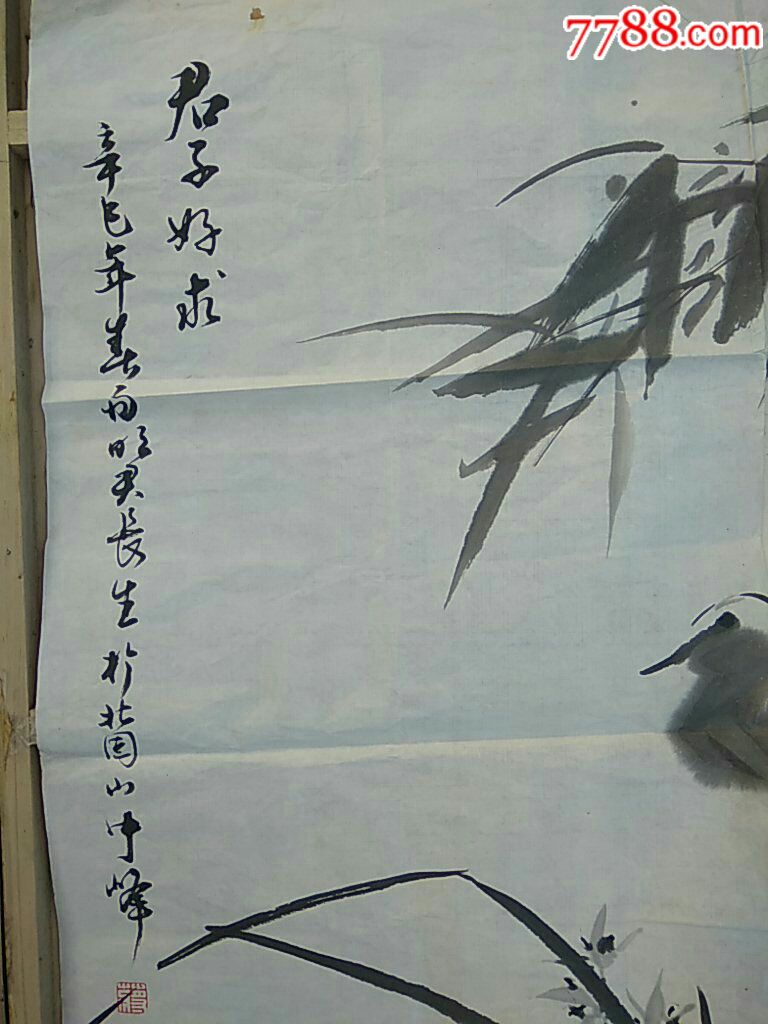 7788.com
君子好求
辛巳年春雨明吴長生於北固山中峰